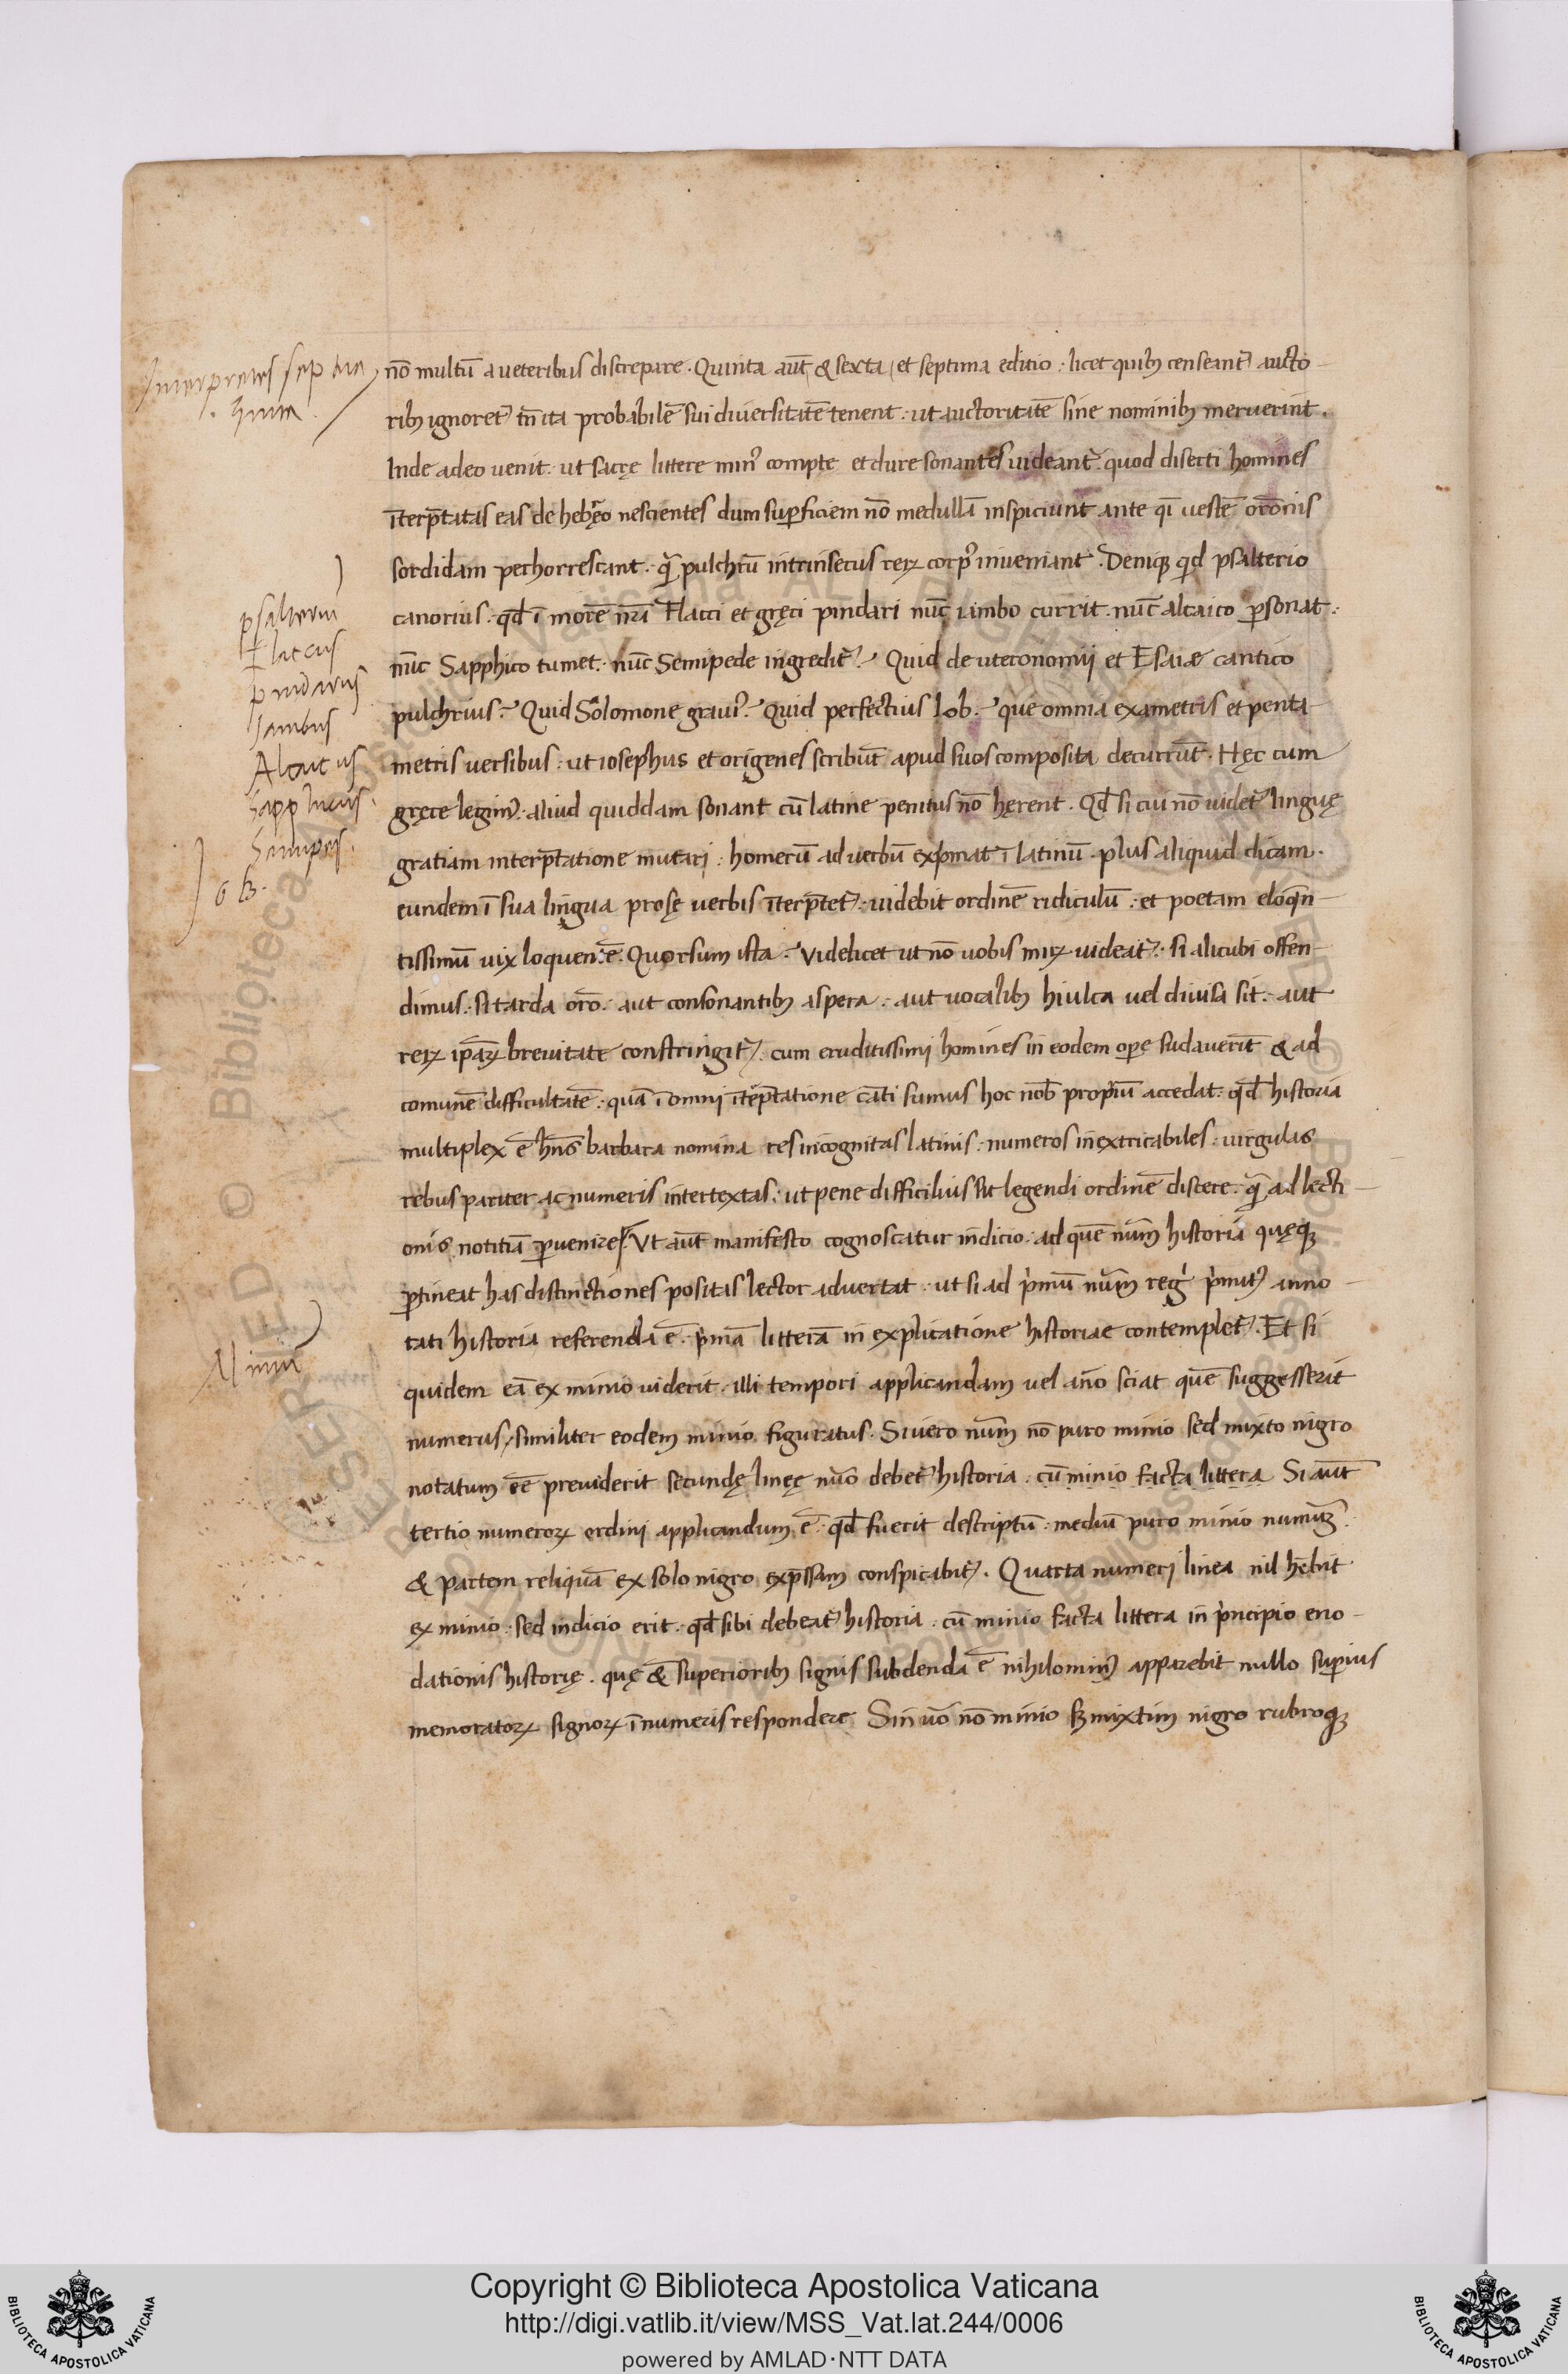 Interpretes septua
ginta.
nō multū a ueteribus discrepare. Quinta aūt & sexta et septima editio : licet quibꝫ censeant᷑ aucto-
ribꝫ ignoret᷑ tn̄ ita probabilē sui diuersitatē tenent : ut auctoritatē sine nominibꝫ meruerint.
Inde adeo uenit ut sacrę littere minꝰ compte et dure sonantes uideant᷑ quod diserti homines
īterp̄tatas eas de hebręo nescientes dum suꝑficiem nō medullā inspiciunt ante qͣ̄ uestē orōnis
sordidam perhorrescant. qͣ̄ pulchrū intrinsecus reꝝ corpꝰ inueniant. Deniqꝫ qͥd psalterio
canorius : qd̄ ī morē nr̄i Flacci et gręci pindari nūc iambo currit. nūc alcaico ꝑsonat :
nūc Sapphico tumet. nūc Semipede ingredit᷑? Quid deuteronomij et Esaiæ cantico
pulchrius? Quid Solomone grauiꝰ? Quid perfectius Iob? que omnia exametris et penta-
metris uersibus : ut iosephus et origenes scribūt apud suos composita decurrūt. Hęc cum
gręce legimꝰ aliud quiddam sonant cū latine penitus nō hęrent. Qd̄ si cui nō uidet᷑ linguę
gratiam interp̄tatione mutari : homerū ad uerbū exp̱mat ī latinū. plus aliquid dicam.
eundem ī sua lingua prosę uerbis īterp̄tet᷑ : uidebit ordinē ridiculū : et poetam eloqn̄-
tissimū uix loquentē. Quorsum ista. Videlicet ut nō uobis miꝝ uideat᷑ si alicubi offen-
dimus. si tarda orō. aut consonantibꝫ aspera. aut uocalibꝫ hiulca uel diuisa sit. aut
reꝝ ip̄aꝝ breuitate constringit᷑ cum eruditissimi homines in eodem oꝑe sudauerīt & ad
comunē difficultatē : quā ī omni īterp̄tatione cāti sumus hoc nob̄ propͥum accedat. qd̄ historia
multiplex ē hn̄s barbara nomina res incognitas latinis : numeros inextricabiles : uirgulas
rebus pariter ac numeris intertextas. ut pene difficilius sit legendi ordinē discere. qͣ̄ ad lecti-
onis notitiā ꝑuenire. Vt aūt manifesto cognoscatur indicio ad quē num̄ historia quęqꝫ
ꝑtineat has distinctiones positas lector aduertat. ut si ad pͥmū num̄ regͥ pͥmitꝰ anno-
tati historia referenda ē. pͥmā litterā in explicatione historiae contemplet᷑. Et si
quidem eā ex minio uiderit. illi tempori applicandam uel año sciat quē suggesserit
numerus similiter eodem minio figuratus. Si uero num̄ nō puro minio sed mixto nigro
notatum eē preuiderit secundę linęę nūo debet᷑ historia. cū minio facta littera. Si aūt
tertio numeroꝝ ordini applicandum ē. qd̄ fuerit descriptū : mediū puro minio
& partem reliquā ex solo nigro exp̄ssam conspicabit᷑. Quarta numeri linea nil hēbit
ex minio : sed indicio erit. qd̄ sibi debeat᷑ historia. cū minio facta littera in pͥncipio eno-
dationis historię. quę & superioribꝫ signis subdenda ē nihilominꝰ apparebit nullo suꝑius
memoratoꝝ signoꝝ ī numeris respondere. Sin uō nō minio sꝫ mixtim nigro rubroqꝫ
psalterium
Flaccus
pindarus
Iambus
Alcaicus
Sapphicus.
Semipes.
Job.
Minium
Copyright © Biblioteca Apostolica Vaticana
http://digi.vatlib.it/view/MSS_Vat.lat.244/0006
powered by AMLAD·NTT DATA
BIBLIOTECA APOSTOLICA VATICANA
BIBLIOTECA APOSTOLICA VATICANA